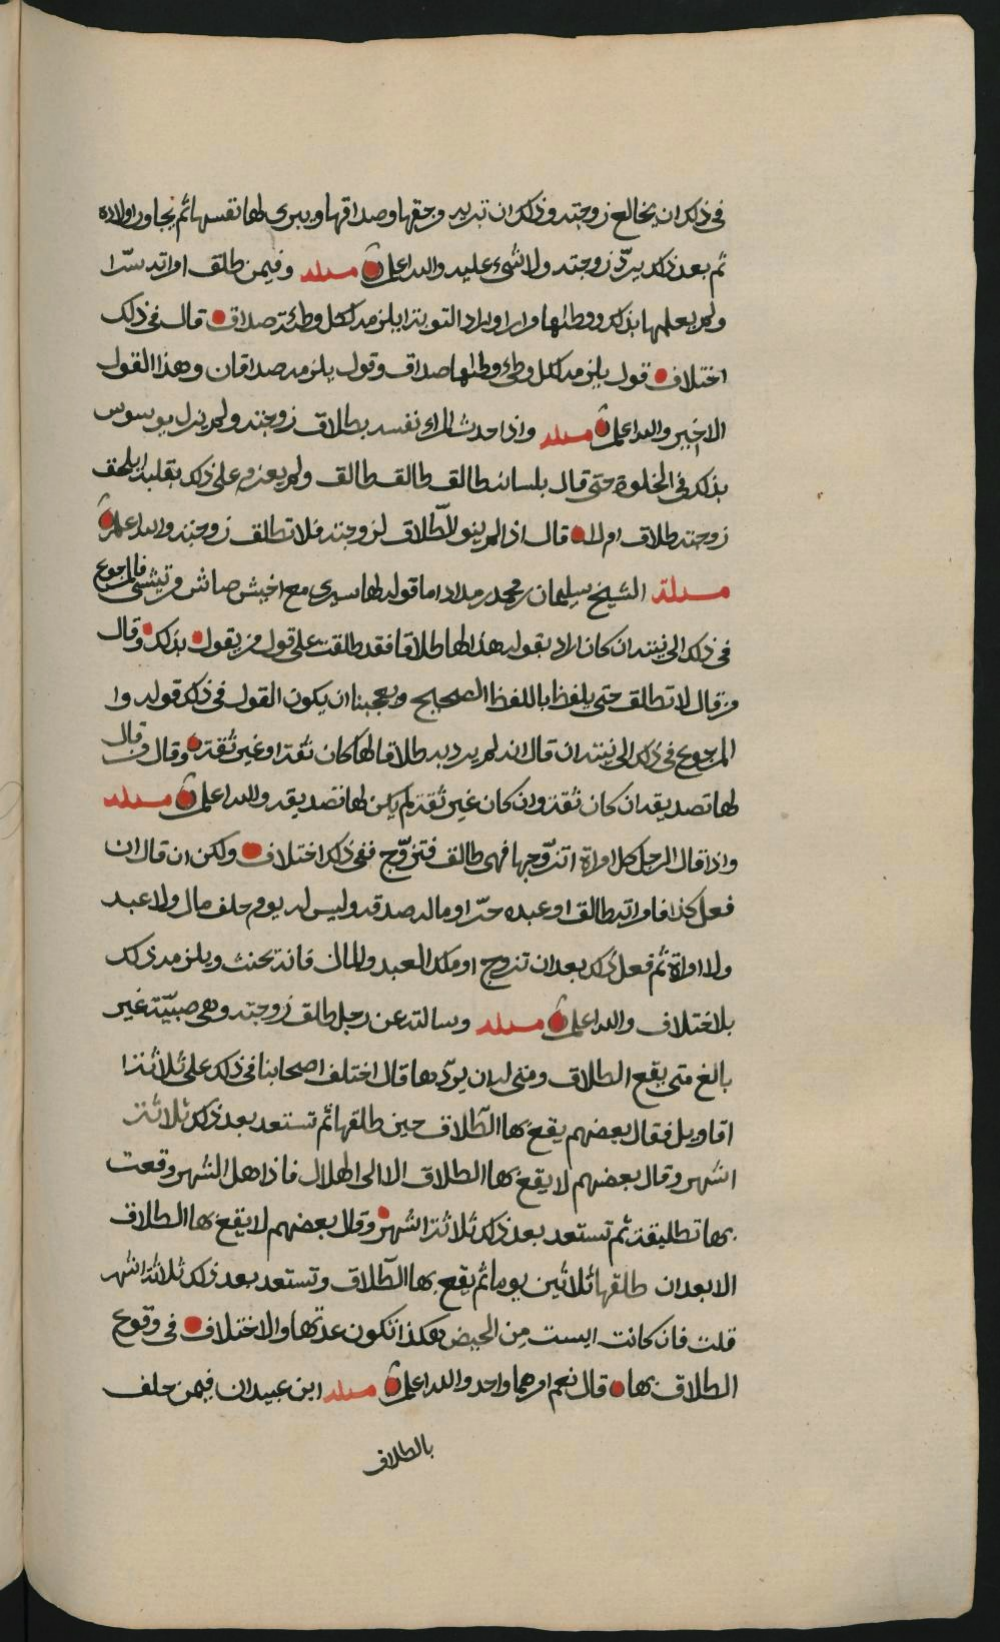 في ذلك ان يخالع زوجته وذلك ان تبريه وحقها وصداقها ويبري لها نفسها ثم يجاور اولاده
ثم بعد ذلك يردّ زوجته ولا شيء عليه والله اعلم مسئله وفيمن طلق امراته سرّا
ولم يعلمها بذلك ووطئها مرارا واراد التوبة ايلزمه لكل وطئة صداق قال في ذلك
اختلاف قول يلزمه لكل وطئ وطئها صداق وقول يلزمه صداقان وهذا القول
الاخير والله اعلم مسئله واذا حدث المراء نفسه بطلاق زوجته ولم يزل يوسوس
بذلك في الخلوة حتى قال بلسانه طالق طالق طالق ولم يعزم على ذلك بقلبه ايلحق
زوجته طلاق ام لا قال اذا لم ينو الطّلاق لزوجته فلا تطلق زوجته والله اعلم
مسئلة الشيخ سليمان بن محمد بن مداد اما قوله لها سيري مع فالمرجوع
في ذلك الى نيته ان كان اراد بقوله هذا لها طلاقا فقد طلقت على قول من يقول بذلك وقال
من قال لا تطالق حتى يلفظ باللفظ الصحيح ويعجبنا ان يكون القول في ذلك قوله وا
المرجوع في ذلك الى نيته ان قال انه لم يرد به طلاقا لها كان ثقة او غير ثقة وقال من قال
لها تصديقه ان كان ثقة وان كان غير ثقة لم يكن لها تصديقه والله اعلم مسئله
واذا قال الرجل كل امراة اتزوّجها فهي طالق فتزوّج ففي ذلك اختلاف ولكن ان قال ان
فعل كذا فامراته طالق او عبده حرّ او ماله صدقه وليس له يوم حلف مال ولا عبد
ولا امراة ثم فعل ذلك بعد ان تزوج او ملك العبد والمال فانه يحنث ويلزمه ذلك
بلا اختلاف والله اعلم مسئله وسالته عن رجل طلق زوجته وهي صبيّة غير
بالغ متى يقع الطلاق ومتى له ان يردّها قال اختلف اصحابنا في ذلك على ثلاثة
اقاويل فقال بعضهم يقع بها الطّلاق حين طلقها ثم تستعد بعد ذلك ثلاثة
اشهر وقال بعضهم لا يقع بها الطلاق الا الى الهلال فاذا هل الشهر وقعت
بها تطليقة ثم تستعد بعد ذلك ثلاثة اشهر وقال بعضهم لا يقع بها الطلاق
الا بعد ان طلقها ثلاثين يوما ثم يقع بها الطّلاق وتستعد بعد ذلك ثلاثة اشهر
قلت فان كانت ايست من الحيض هكذا تكون عدتها والاختلاف في وقوع
الطلاق بها قال نعم امرهما واحد والله اعلم مسئله ابن عبيدان فيمن حلف
بالطلاق